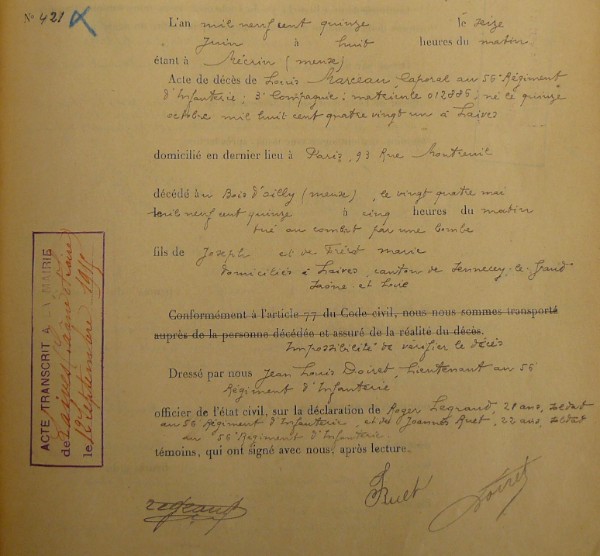 N° 421
L'an mil neuf cent quinze le seize
Juin à huit heures du matin
étant à Mécrin (Meuse)
Acte de décès de Louis Marceau Caporal au 56e Régiment
d'Infanterie, 3e Compagnie, matricule 012885, né le quinze
octobre mil huit cent quatre vingt un à Laives
domicilié en dernier lieu à Paris, 93 Rue Montreuil
décédé au Bois d'Ailly (Meuse), le vingt quatre mai
mil neuf cent quinze à cinq heures du matin
tué au combat par une bombe
fils de Joseph et de Marie
domiciliés à Laives, canton de Sennecey le Grand
Saône et Loire
Conformément à l'article 77 du Code civil, nous nous sommes transporté
auprès de la personne décédée et assuré de la réalité du décès.
Impossibilité de vérifier le décès
Dressé par nous Jean Louis Doiret, Lieutenant au 56
Régiment d'Infanterie
officier de l'état civil, sur la déclaration de Roger Legrand, 21 ans, soldat
au 56e Régiment d'Infanterie, et de Joannès Ruet, 22 ans, soldat
au 56e Régiment d'Infanterie
témoins, qui ont signé avec nous, après lecture.
Ruet
Doiret
ACTE TRANSCRIT A LA MAIRIE
de
le septembre 1915